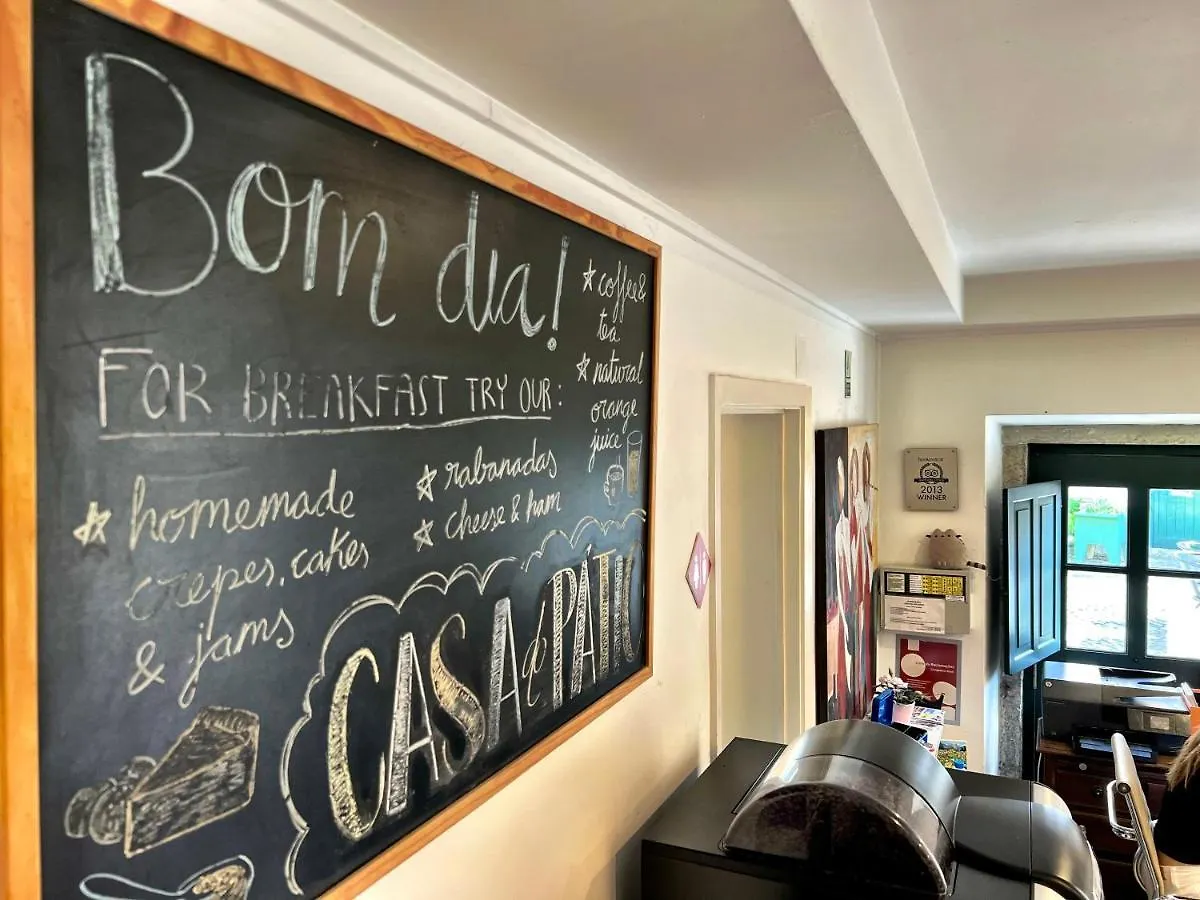 Bom dia!
FOR BREAKFAST TRY OUR:
homemade
crepes, cakes
& jams
rabanadas
cheese & ham
coffee &
tea
natural
orange
juice
CASA do PÁTIO
2013
WINNER